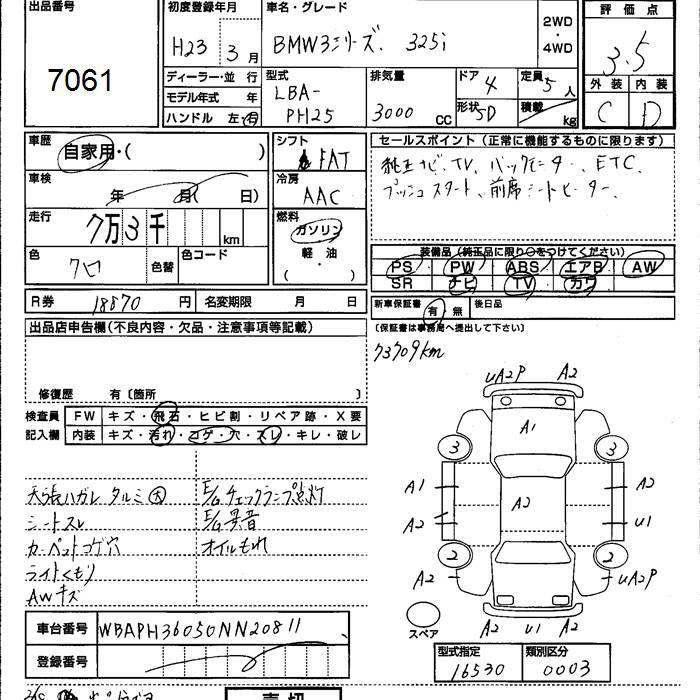 出品番号
7061
初度登録年月
H23 3月
車名・グレード
BMW3シリーズ. 325i
2WD
・
4WD
評価点
3.5
外装 内装
C D
ディーラー・並行
モデル年式 年
ハンドル 左・右
型式
LBA-
PH25
排気量
3000 CC
ドア 4
形状 5D
定員 5 人
積載 kg
車歴
自家用・( )
車検
年 月( 日)
走行
7万3千 km
色
クロ
色替
色コード
シフト
FAT
冷房
AAC
燃料
ガソリン
・
軽・油
( )
セールスポイント (正常に機能するものに限ります)
純正ナビ、TV、バックモニター、ETC、
プッシュスタート、前席シートヒーター、
装備品 (純正品に限り○をつけてください)
PS PW ABS エアB AW
SR ナビ TV カワ
新車保証書 有・無 後日品
(保証書は事務局へ提出して下さい)
R券 18870円 名変期限 月 日
出品店申告欄(不良内容・欠品・注意事項等記載)
修復歴 有〔箇所 〕
検査員
記入欄
FW キズ・飛石・ヒビ割・リペア跡・X要
内装 キズ・汚れ・コゲ・穴・スレ・キレ・破レ
73709km
天張ハガレ タルミ大
シートスレ
カーペットコゲ穴
ライトくもり
AWキズ
E/Gチェックランプ点灯
E/G異音
オイルもれ
uA2P A2
A1
3 3
A1 A2
A2
A2 u1
2 2
A2 uA2P
スペア
A2 u1 A2
車台番号 WBAPH36050NN20811
登録番号
型式指定 類別区分
16530 0003